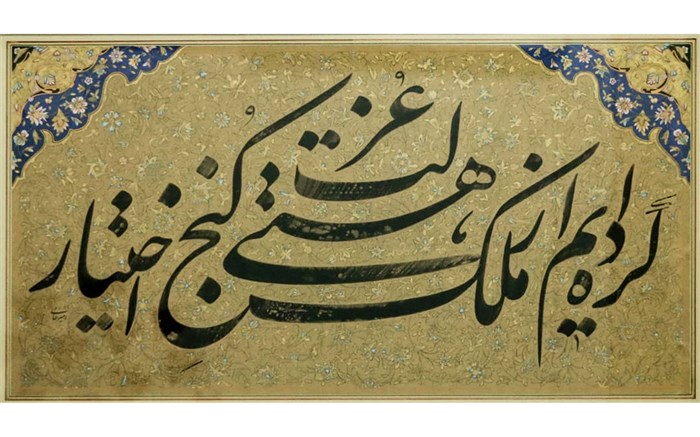 کرده‌ایم از ملک هستی کنج عزلت اختیار